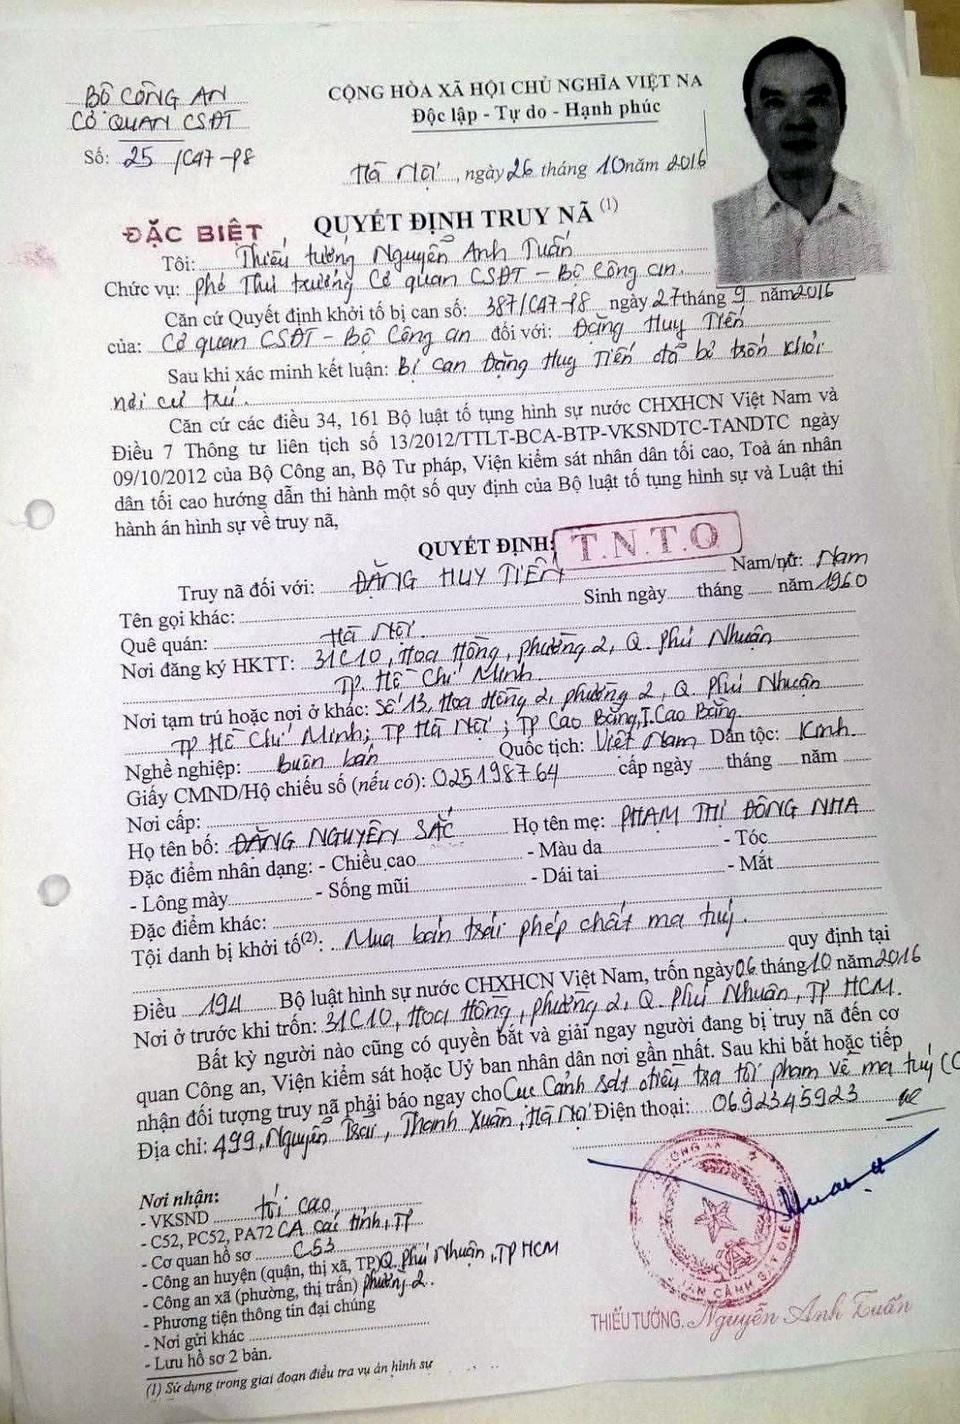 BỘ CÔNG AN
CƠ QUAN CSĐT
Số: 25 /C47-P8
CỘNG HÒA XÃ HỘI CHỦ NGHĨA VIỆT NA
Độc lập - Tự do - Hạnh phúc
Hà Nội, ngày 26 tháng 10 năm 2016
ĐẶC BIỆT
QUYẾT ĐỊNH TRUY NÃ (1)
Tôi: Thiếu tướng Nguyễn Anh Tuấn
Chức vụ: Phó Thủ trưởng Cơ quan CSĐT - Bộ Công an.
Căn cứ Quyết định khởi tố bị can số: 387/C47-P8 ngày 27 tháng 9 năm 2016
của: Cơ quan CSĐT - Bộ Công an đối với: Đặng Huy Tiến
Sau khi xác minh kết luận: Bị can Đặng Huy Tiến đã bỏ trốn khỏi
nơi cư trú.
Căn cứ các điều 34, 161 Bộ luật tố tụng hình sự nước CHXHCN Việt Nam và
Điều 7 Thông tư liên tịch số 13/2012/TTLT-BCA-BTP-VKSNDTC-TANDTC ngày
09/10/2012 của Bộ Công an, Bộ Tư pháp, Viện kiểm sát nhân dân tối cao, Toà án nhân
dân tối cao hướng dẫn thi hành một số quy định của Bộ luật tố tụng hình sự và Luật thi
hành án hình sự về truy nã,
QUYẾT ĐỊNH:
T.N.T.O
Truy nã đối với: ĐẶNG HUY TIẾN Nam/nữ: Nam
Tên gọi khác: Sinh ngày tháng năm 1960
Quê quán: Hà Nội.
Nơi đăng ký HKTT: 31C10, Hoa Hồng, phường 2, Q. Phú Nhuận
TP. Hồ Chí Minh.
Nơi tạm trú hoặc nơi ở khác: Số 13, Hoa Hồng 2, phường 2, Q. Phú Nhuận
TP Hồ Chí Minh; TP Hà Nội; TP Cao Bằng, T. Cao Bằng.
Nghề nghiệp: Buôn bán Quốc tịch: Việt Nam Dân tộc: Kinh.
Giấy CMND/Hộ chiếu số (nếu có): 025198764 cấp ngày tháng năm
Nơi cấp:
Họ tên bố: ĐẶNG NGUYÊN SẮC Họ tên mẹ: PHẠM THỊ ĐÔNG NHA
Đặc điểm nhân dạng: - Chiều cao - Màu da - Tóc
- Lông mày - Sống mũi - Dái tai - Mắt
Đặc điểm khác:
Tội danh bị khởi tố(2): Mua bán trái phép chất ma tuý.
quy định tại
Điều 194 Bộ luật hình sự nước CHXHCN Việt Nam, trốn ngày 06 tháng 10 năm 2016
Nơi ở trước khi trốn: 31C10, Hoa Hồng, phường 2, Q. Phú Nhuận, TP HCM.
Bất kỳ người nào cũng có quyền bắt và giải ngay người đang bị truy nã đến cơ
quan Công an, Viện kiểm sát hoặc Uỷ ban nhân dân nơi gần nhất. Sau khi bắt hoặc tiếp
nhận đối tượng truy nã phải báo ngay cho Cục Cảnh sát điều tra tội phạm về ma tuý (C
Địa chỉ: 499, Nguyễn Trãi, Thanh Xuân, Hà Nội Điện thoại: 0692345923
Nơi nhận:
- VKSND tối cao,
- C52, PC52, PA72 CA các tỉnh, TP
- Cơ quan hồ sơ C53
- Công an huyện (quận, thị xã, TP) Q. Phú Nhuận, TP HCM
- Công an xã (phường, thị trấn) phường 2.
- Phương tiện thông tin đại chúng
- Nơi gửi khác
- Lưu hồ sơ 2 bản.
THIẾU TƯỚNG, Nguyễn Anh Tuấn
(1) Sử dụng trong giai đoạn điều tra vụ án hình sự